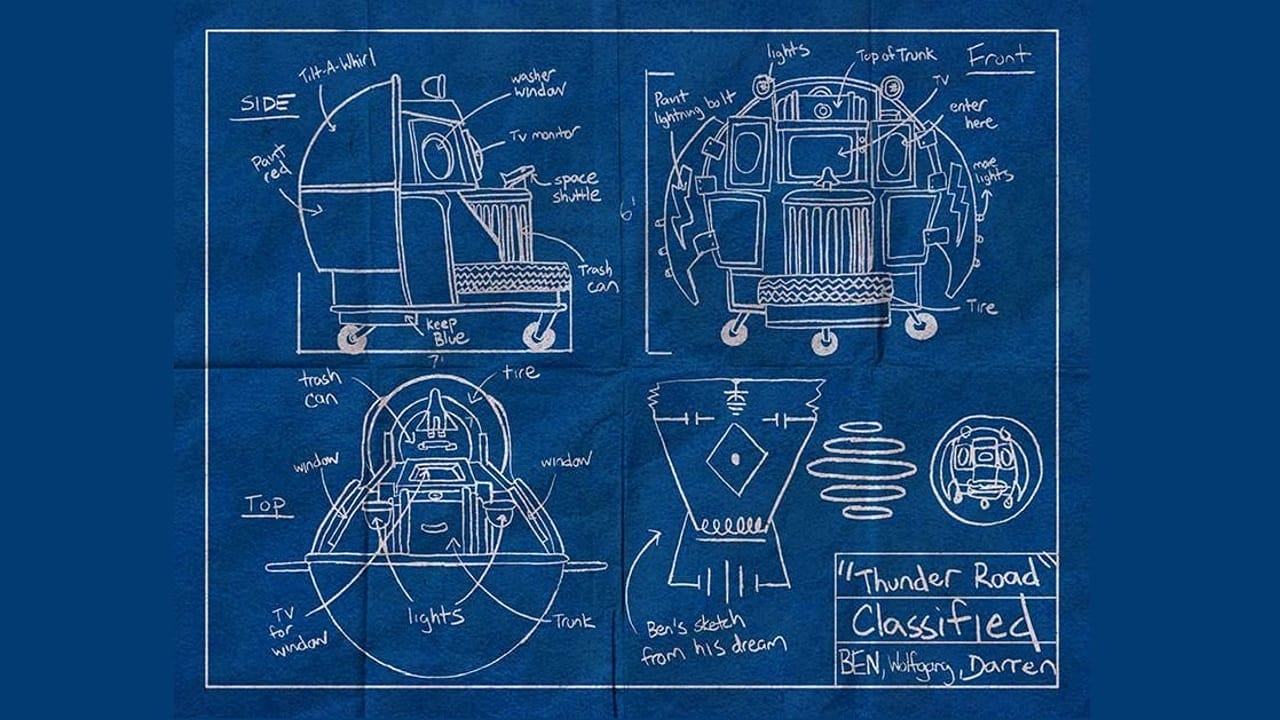 SIDE
Tilt-A-Whirl
washer
window
Tv monitor
Paint
red
space
shuttle
Trash
can
keep
Blue
7'
Front
lights
Top of Trunk
TV
Paint
lightning bolt
enter
here
more
lights
6'
Tire
Top
trash
can
tire
window
window
TV
for
window
lights
Trunk
Ben's sketch
from his dream
"Thunder Road"
Classified
BEN, Wolfgang, Darren